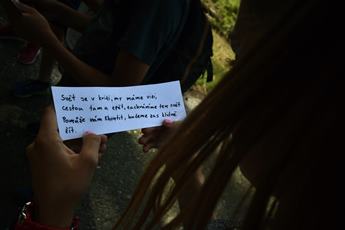 Svět je v krizi, my máme vizi,
cestou tam a zpět, zachráníme ten svět
Pomůže nám Khortit, budeme zas klidně
žít.